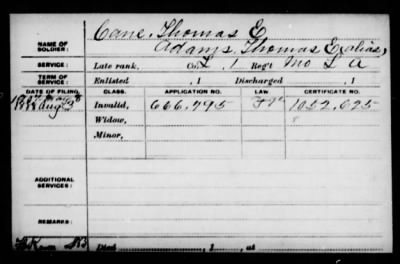 NAME OF SOLDIER: Cane, Thomas E.
Adams, Thomas E (alias)
SERVICE: Late rank, Co. L, 1 Reg't Mo L A
TERM OF SERVICE: Enlisted , 1 Discharged , 1
DATE OF FILING. CLASS. APPLICATION NO. LAW. CERTIFICATE NO.
Aug Invalid, 666,795 1052,625
Widow,
Minor,
ADDITIONAL SERVICES:
REMARKS:
Died , 1 , at